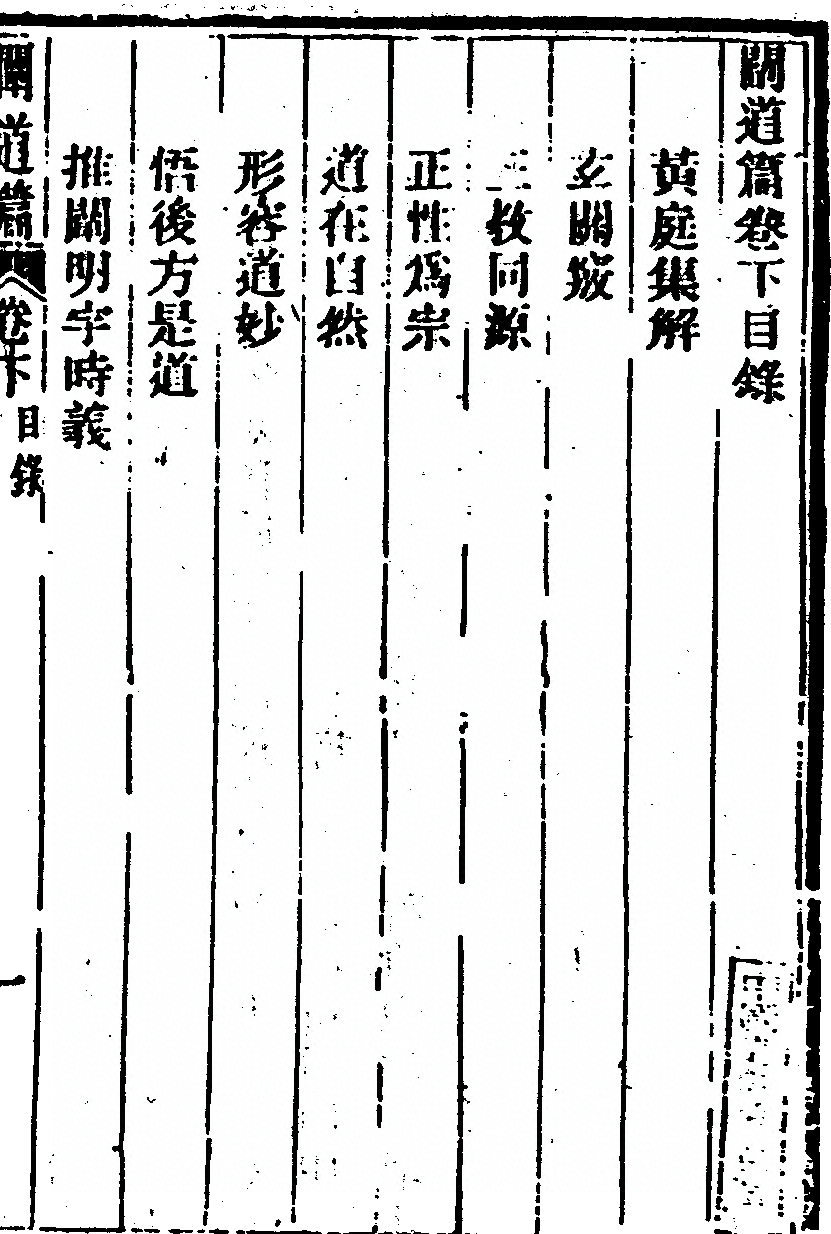 闡道篇卷下目錄
黃庭集解
玄關竅
三教同源
正性爲宗
道在自然
形容道妙
悟後方是道
推闡明字時義
闡道篇 卷下 目錄 一